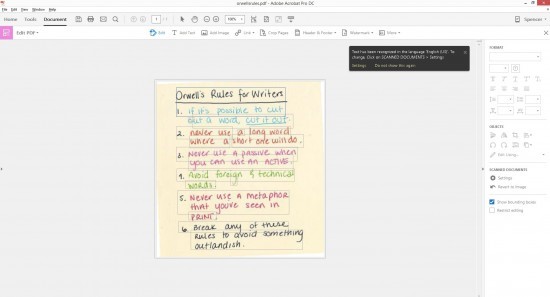 orwellsrules.pdf - Adobe Acrobat Pro DC
File Edit View Window Help
Home Tools Document
1 / 1
100%
Spencer
Edit PDF
Edit Add Text Add Image Link Crop Pages Header & Footer Watermark More
Text has been recognized in the language 'English (US)'. To
change, Click on SCANNED DOCUMENTS > Settings
Settings Do not show again
Orwell's Rules for Writers
1. if it's possible to cut
out a word, cut it out.
2. never use a long word
where a short one will do.
3. Never use a passive when
you can use an ACTIVE.
4. Avoid foreign & technical
words.
5. Never use a metaphor
that you've seen in
PRINT.
6. Break any of these
RULES to avoid something
outlandish.
FORMAT
OBJECTS
SCANNED DOCUMENTS
Settings
Revert to Image
Show bounding boxes
Restrict editing